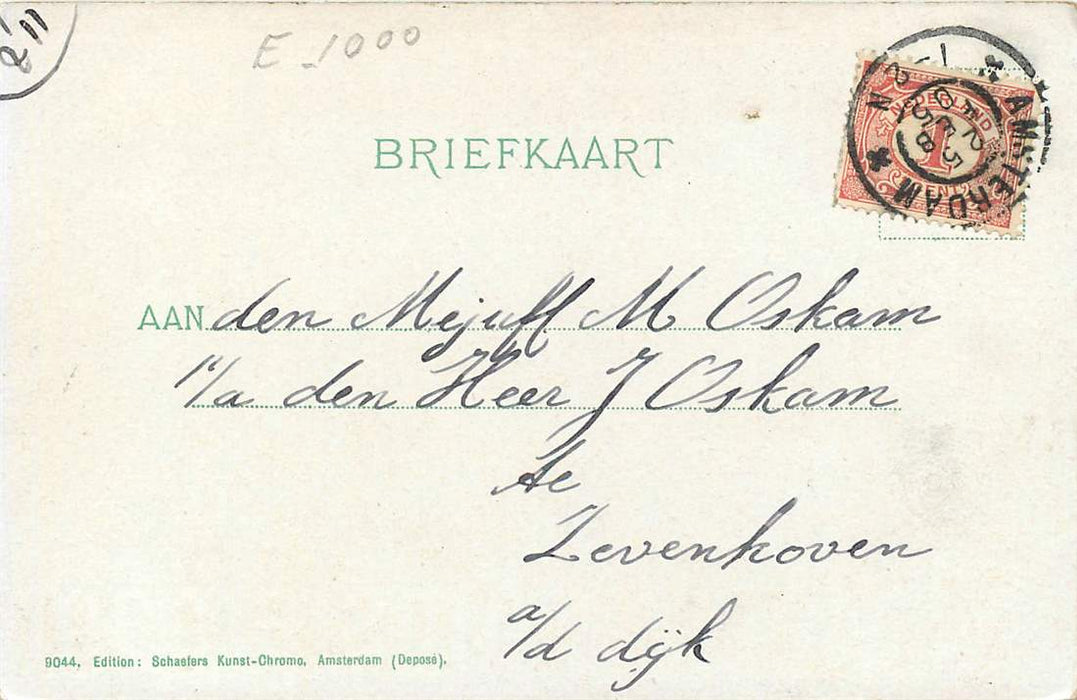 E_1000
BRIEFKAART
NEDERLAND
1
CENT
AMSTERDAM
AAN den Mejuff M Oskam
p/a den Heer J Oskam
te
Zevenhoven
a/d dijk
9044. Edition: Schaefers Kunst-Chromo, Amsterdam (Deposé).